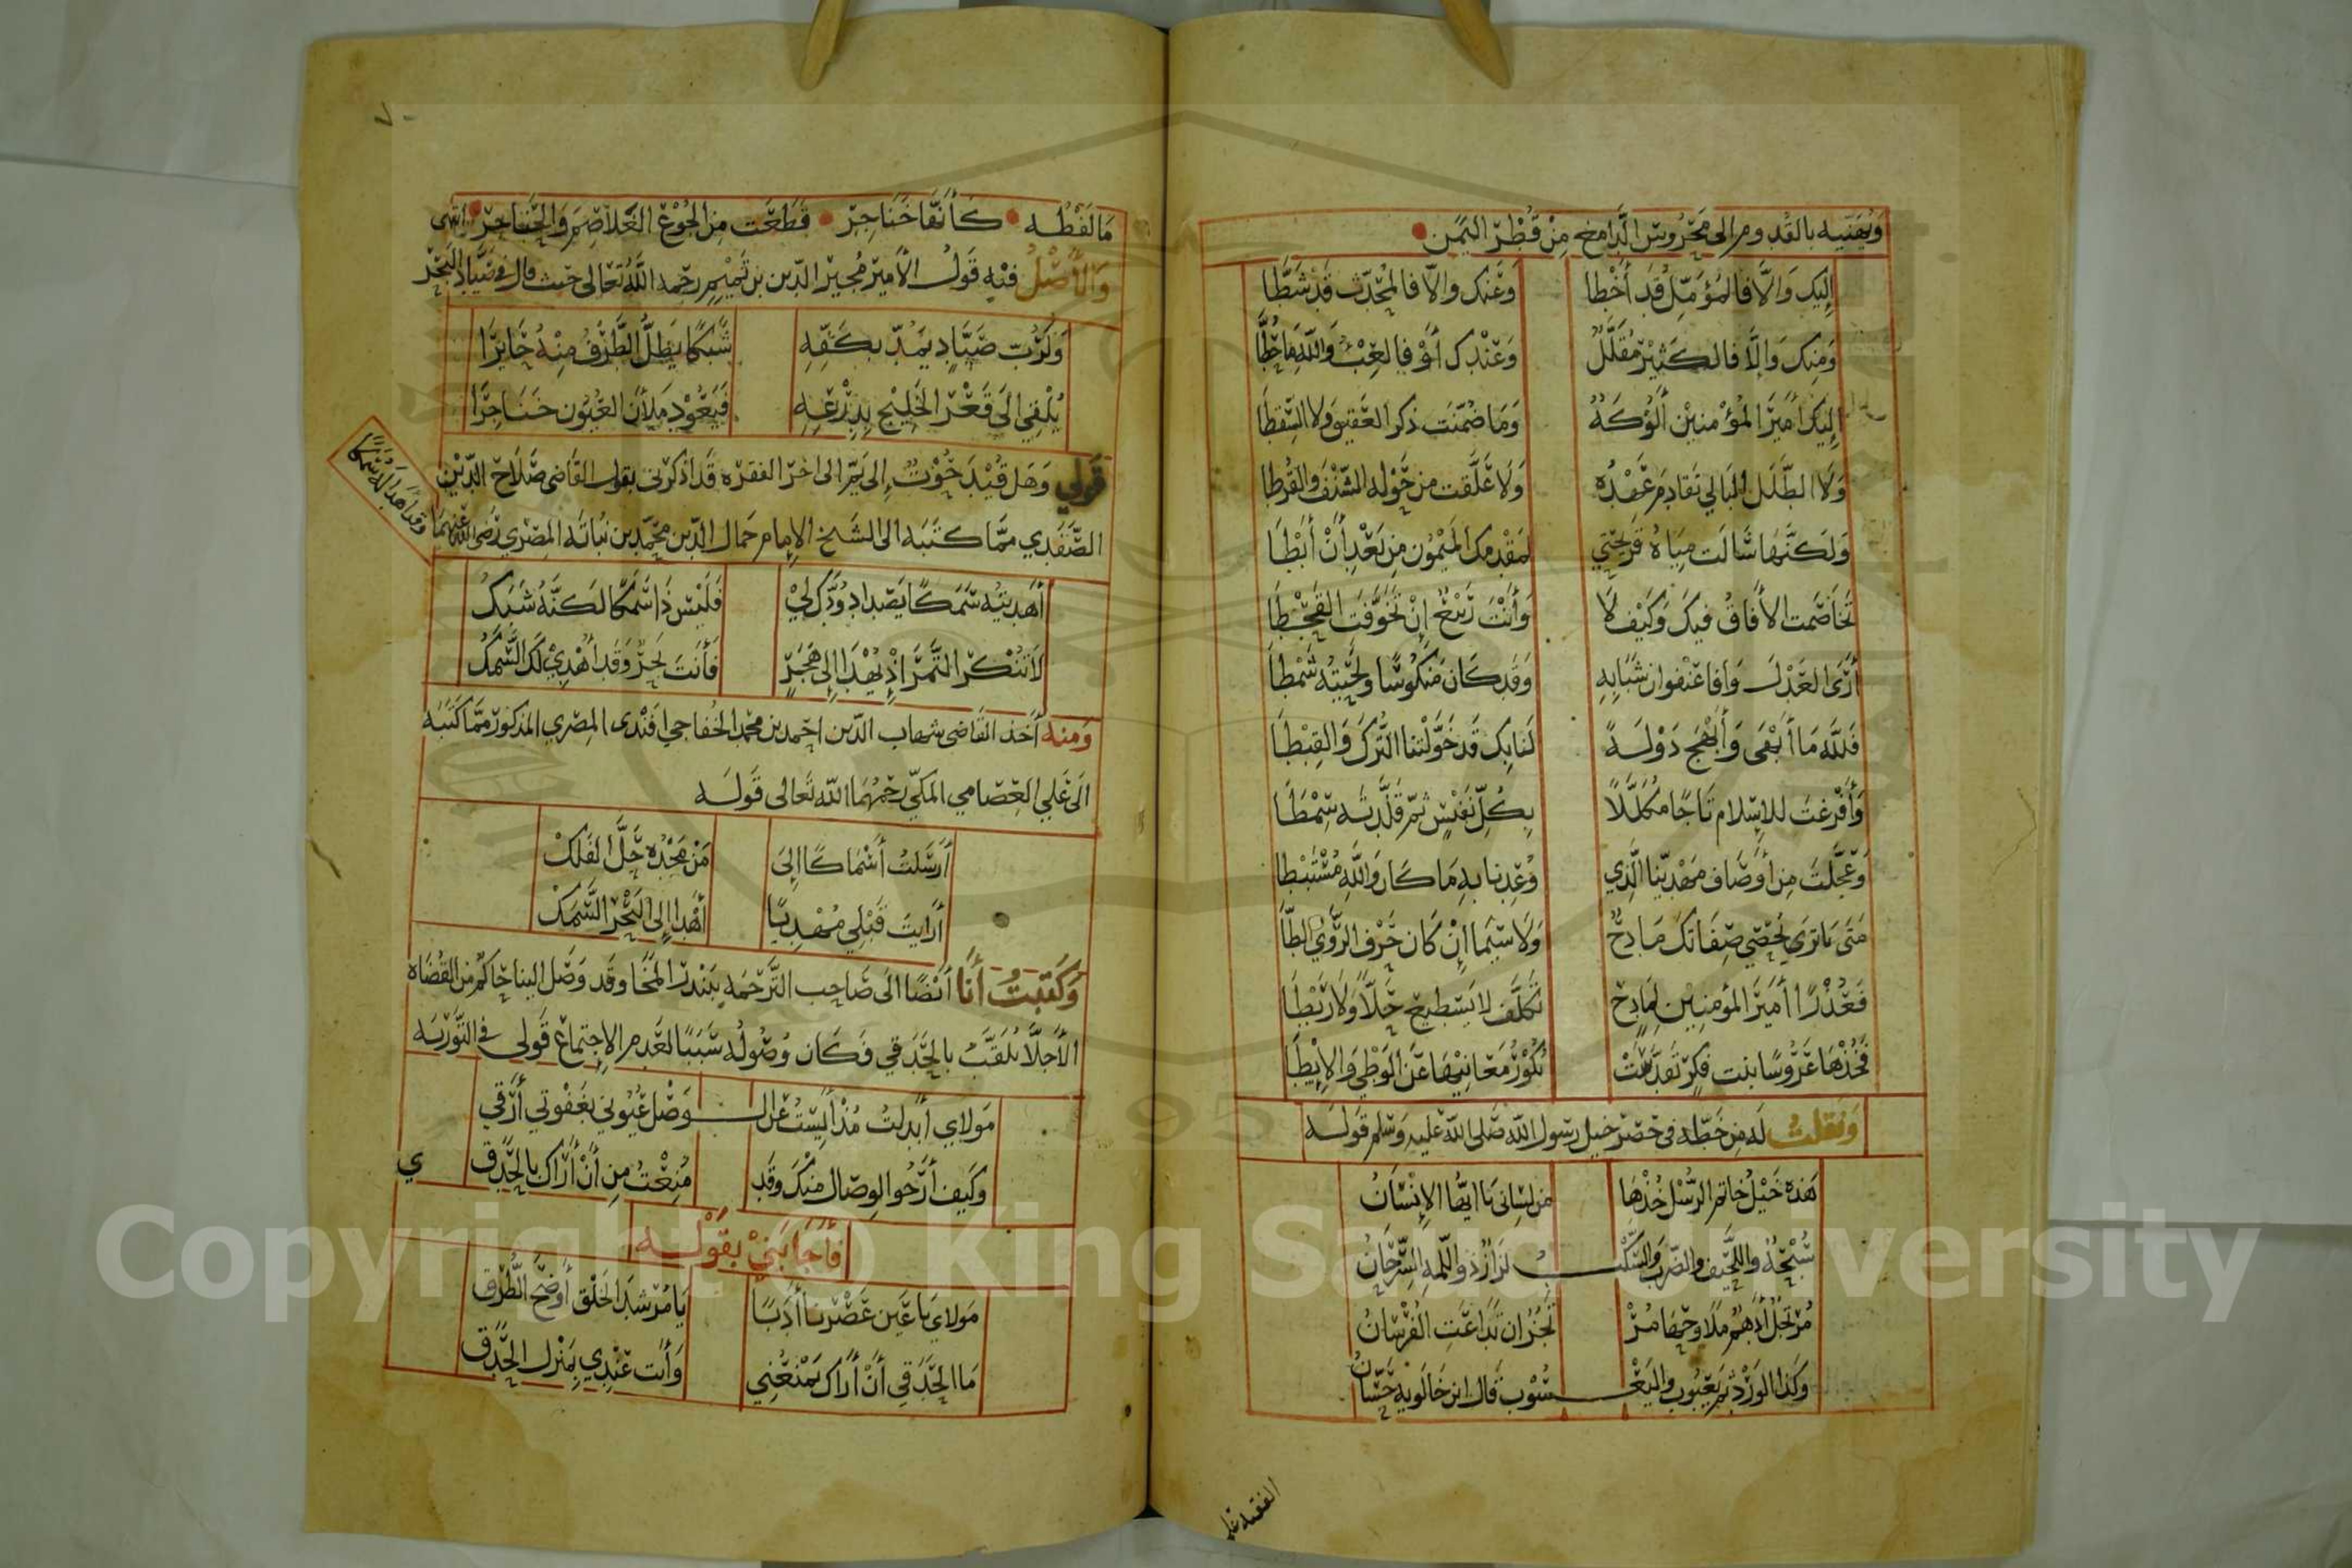 ويهنيه بالقدوم الى محروس الدامغ من قطر اليمن
إليك وَالَّا فالمؤمّل قد أخطا وعنك والّا فالمحدّث قد شطّا
ومنك وَإلَّا فالكثير مقلّل وعندك أوْ فالعبْءُ وَاللّهِ مَا حُطَّا
إليك اميرَ المؤمنين ألوكةً وما ضمّنت ذكر العقيق ولا السقطا
ولا الطلل البالي تقادم عهده ولا علّقت من حوله الشنف والقرطا
ولكنها سالت مياه قريحتي لمقدمك الميمون من بعد أن أبطا
تخاصمت الأفاق فيك وكيف لا وأنت ربيع إن تخوفت القحطا
أرى العدل وافا عنفوان شبابه وقد كان منكوسًا ولحيته شمطا
فلله ما أبهى وأبهج دولة لنا بك قد خوّلتنا الترك والقبطا
وأفرغت للاسلام تاجًا مكللًا بكلّ نفيس ثم قلّدته سمطا
وعجّلت من أوصاف مهديّنا الّذي وُعِدنا به ما كان واللّه مستبطا
متى يا ترى يحصي صفاتك مادحٌ ولا سيّما إن كان حرف الرّويّ الطّا
فعذرًا أمير المؤمنين لمادح تكلّف لا يستطيع حلًّا ولا ربطا
فخذها عروسًا بنت فكر تقدّست
ونقلت له من خطّه في حصر خيل رسول الله صلى الله عليه وسلم قوله
هذه خيلُ خاتم الرسْل خذها من لساني يا ايّها الإنسان
سبْحةٌ واللّحيف والضّرب والسّكْـ ـبُ لزازٌ ذو اللّمة السّرحان
مرتجل أدهم ملاوحها مُرْ تجزٌ ان تداعت الفرسان
وكذا الورد ثم يعبوب واليعـ ـسوب قال ابن خالويه حسّان
الفقيه علي
٧٠
ما لفظه كأنها خناجر قطعت من الجوع الغلاصم والحناجر انتهى
والأصل فيه قول الأمير مجير الدين بن تميم رحمه الله تعالى حيث قال في صيّاد البحر
ولرُبّ صيّادٍ يمدّ بكفّه شبكًا يظلّ الطّرف منه حايرًا
يُلقي الى قعر الخليج بدرعه فيعود ملآن العيون خناجرا
قولي وهل قيد حوت إلى يمّ الى اخر الفقره قد اذكرني بقول القاضي صلاح الدّين
الصّفدي ممّا كتبه الى الشيخ الإمام جمال الدّين محمّد بن نباته المصري رضى الله عنهما
وقد اهدا له سمكا
أهديته سمكًا يصطاد ودّك لي فليس ذا سمكًا لكنّه شبك
لا تنكر التمر إذ يهدا إلى هجرٍ فأنت بحرٌ وقد أُهدي لك السّمك
ومنه أخذ القاضي شهاب الدّين احمد بن محمد الخفاجي افندى المصري المذكور ممّا كتبه
الى علي العصامي المكّي رحمهما الله تعالى قوله
أرسلتُ أسماكًا إلى من مجده حلّ الفلك
أرايت قبلي مهديًا أهدا إلى البحر السّمك
وكتبت أنا أيضًا الى صاحب الترجمه ببندر المخا وقد وصل الينا حاكم من القضاه
الأجلّا يلقّب بالحدقي فكان وصوله سببًا لعدم الإجتماع قولي في التّوريه
مولاي أُبدلتُ مُذْ أيستُ عن الـ ـوصل عيوني بغفوتي أرقي
وكيف أرجوا الوصال منك وقد مُنِعْتُ من أنْ أراك بالحَدَقِي
فأجابني بقوله
مولاي يا عين عصرنا أدبًا يا مرشد الخلق أوضح الطّرق
ما الحدقي أنْ أراك يمنعني وأنت عندي بمنزل الحدق
Copyright © King Saud University